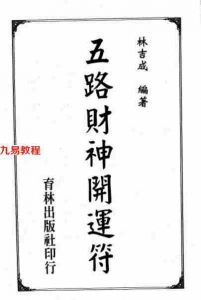 林吉成 編著
五路財神開運符
育林出版社印行
九易教程